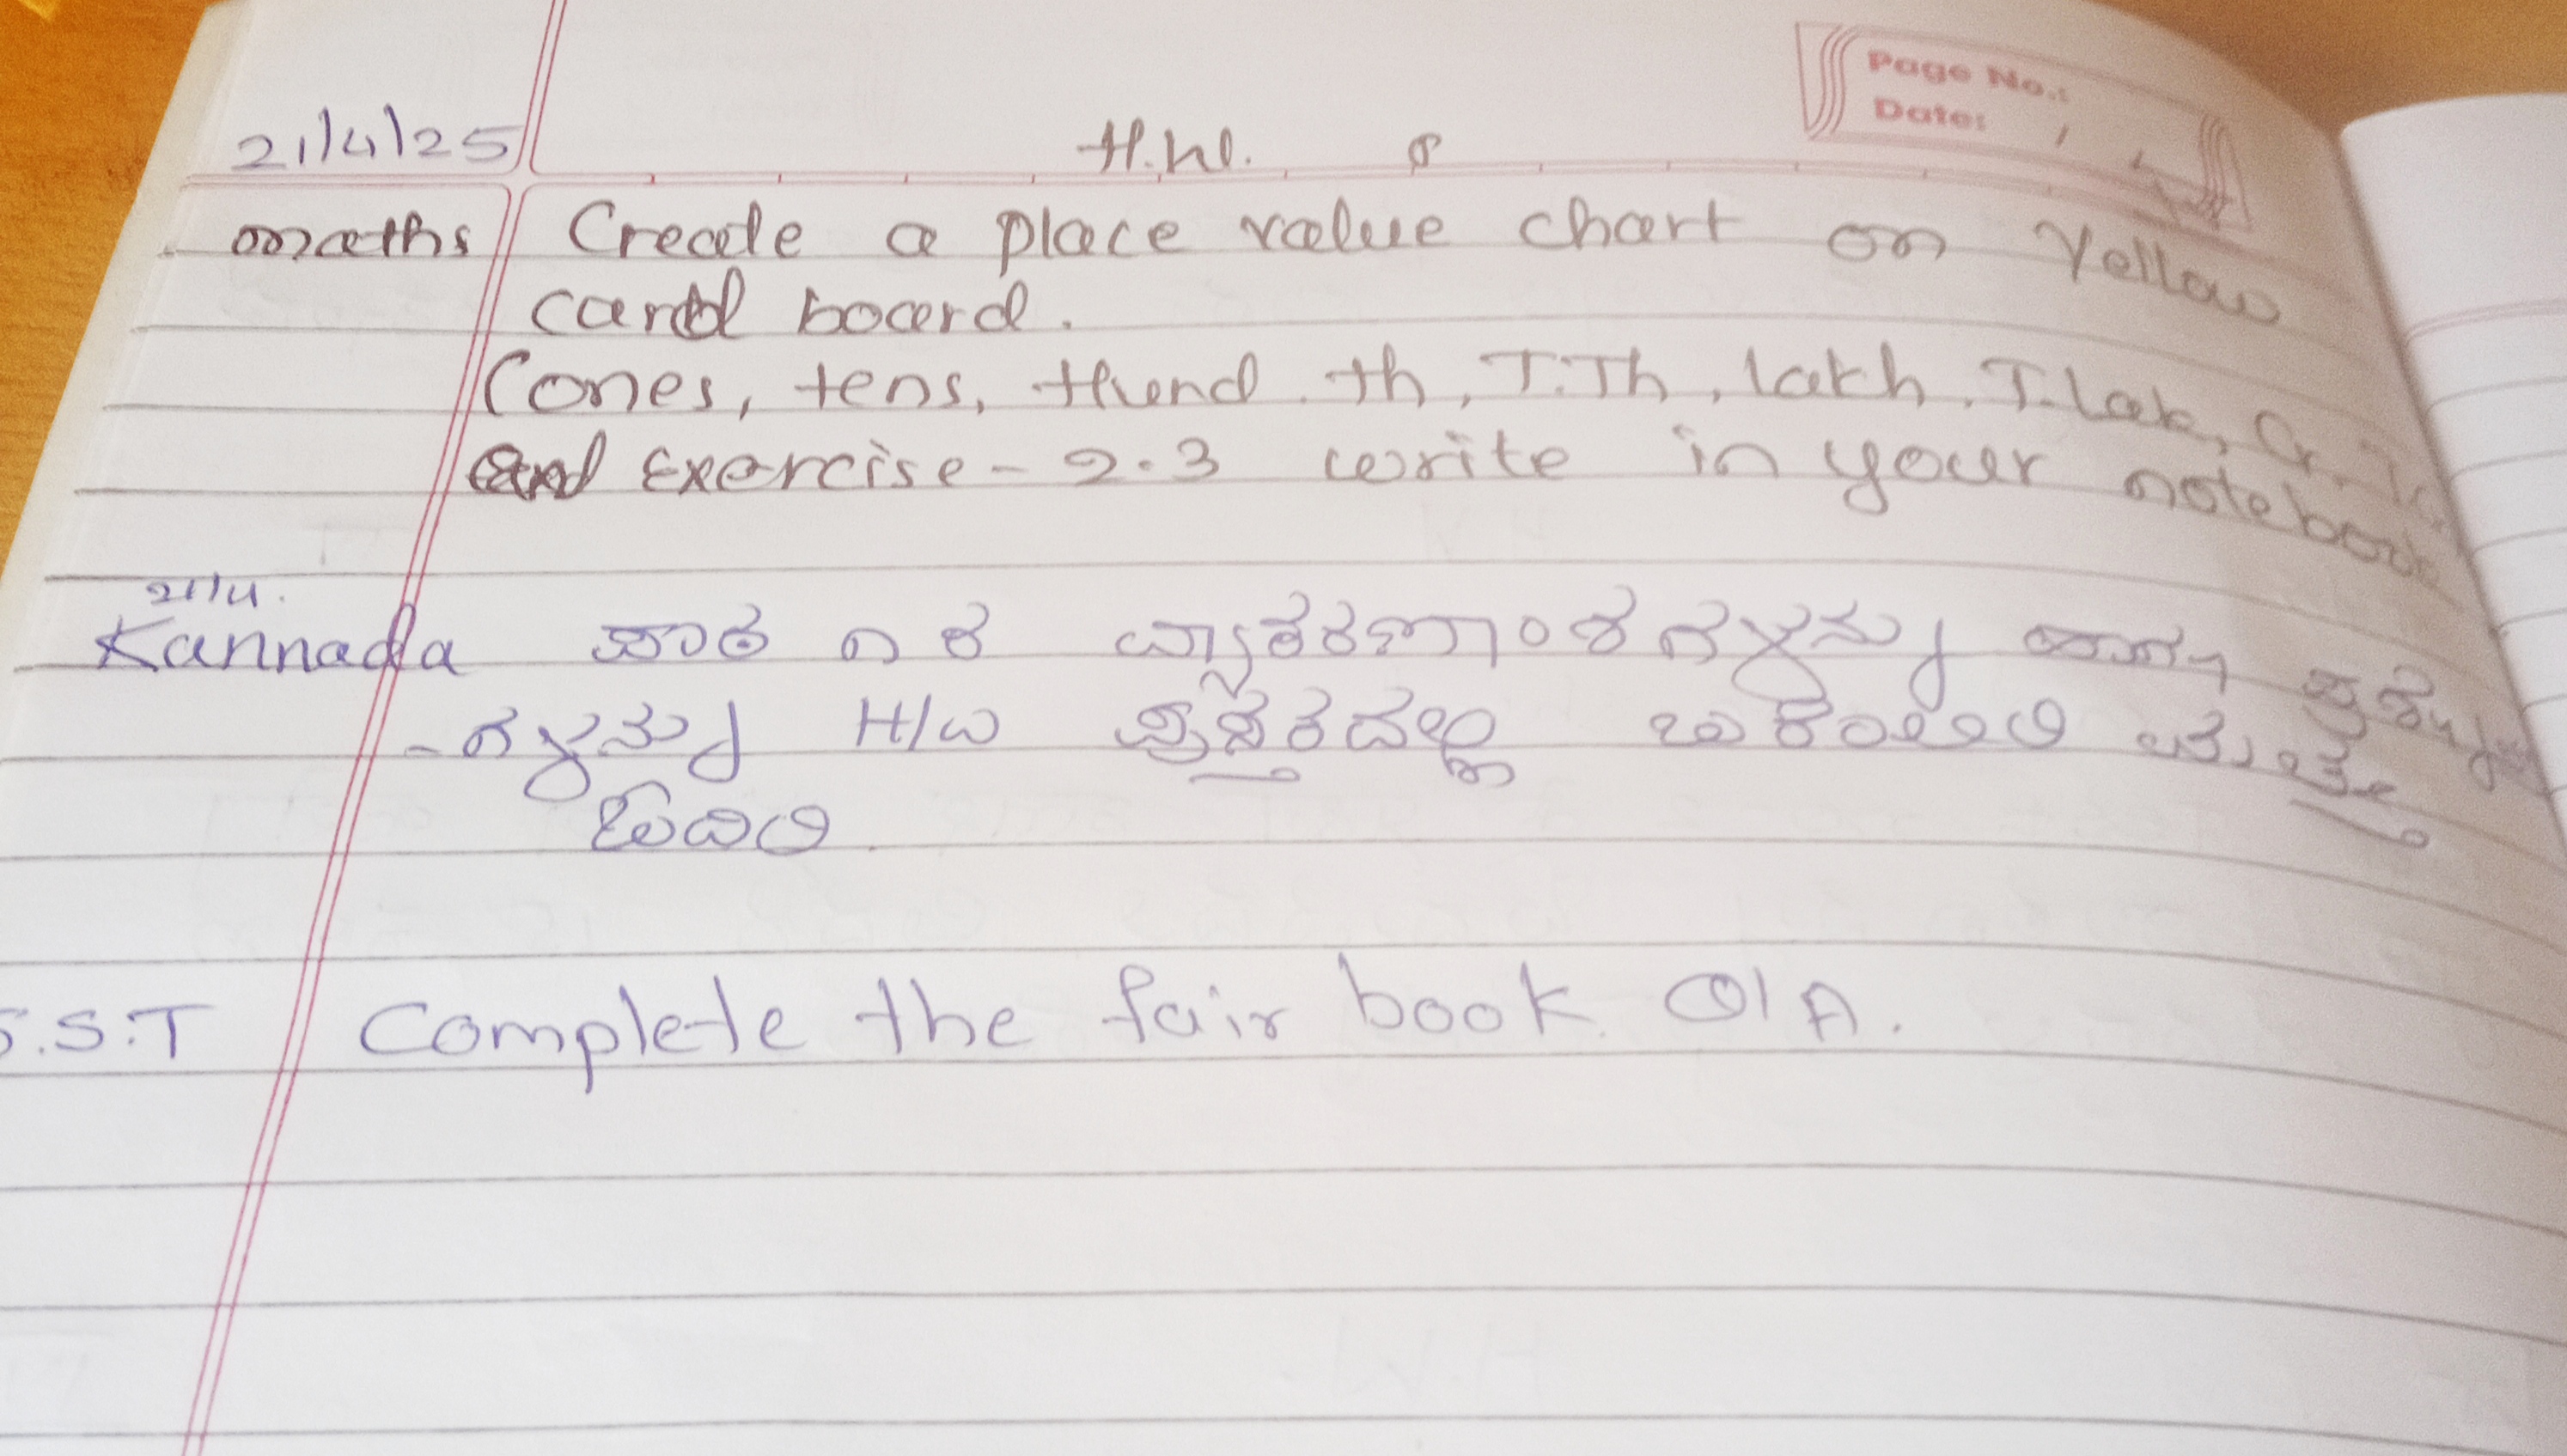 Page No.:
Date: / /
21/4/25 H.W.
maths Create a place value chart on Yellow
card board.
(ones, tens, thund. th, T.Th, lakh, T.lak, Cr,
and Exercise - 2.3 write in your notebook
21/4.
Kannada ಪಾಠ ೧ ರ ವ್ಯಾಕರಣಾಂಶಗಳನ್ನು ಹಾಗೂ
- ಗಳನ್ನು H/W ಪುಸ್ತಕದಲ್ಲಿ ಬರೆಯಿರಿ ಮತ್ತು
ಓದಿರಿ
S.S.T Complete the fair book Q/A.